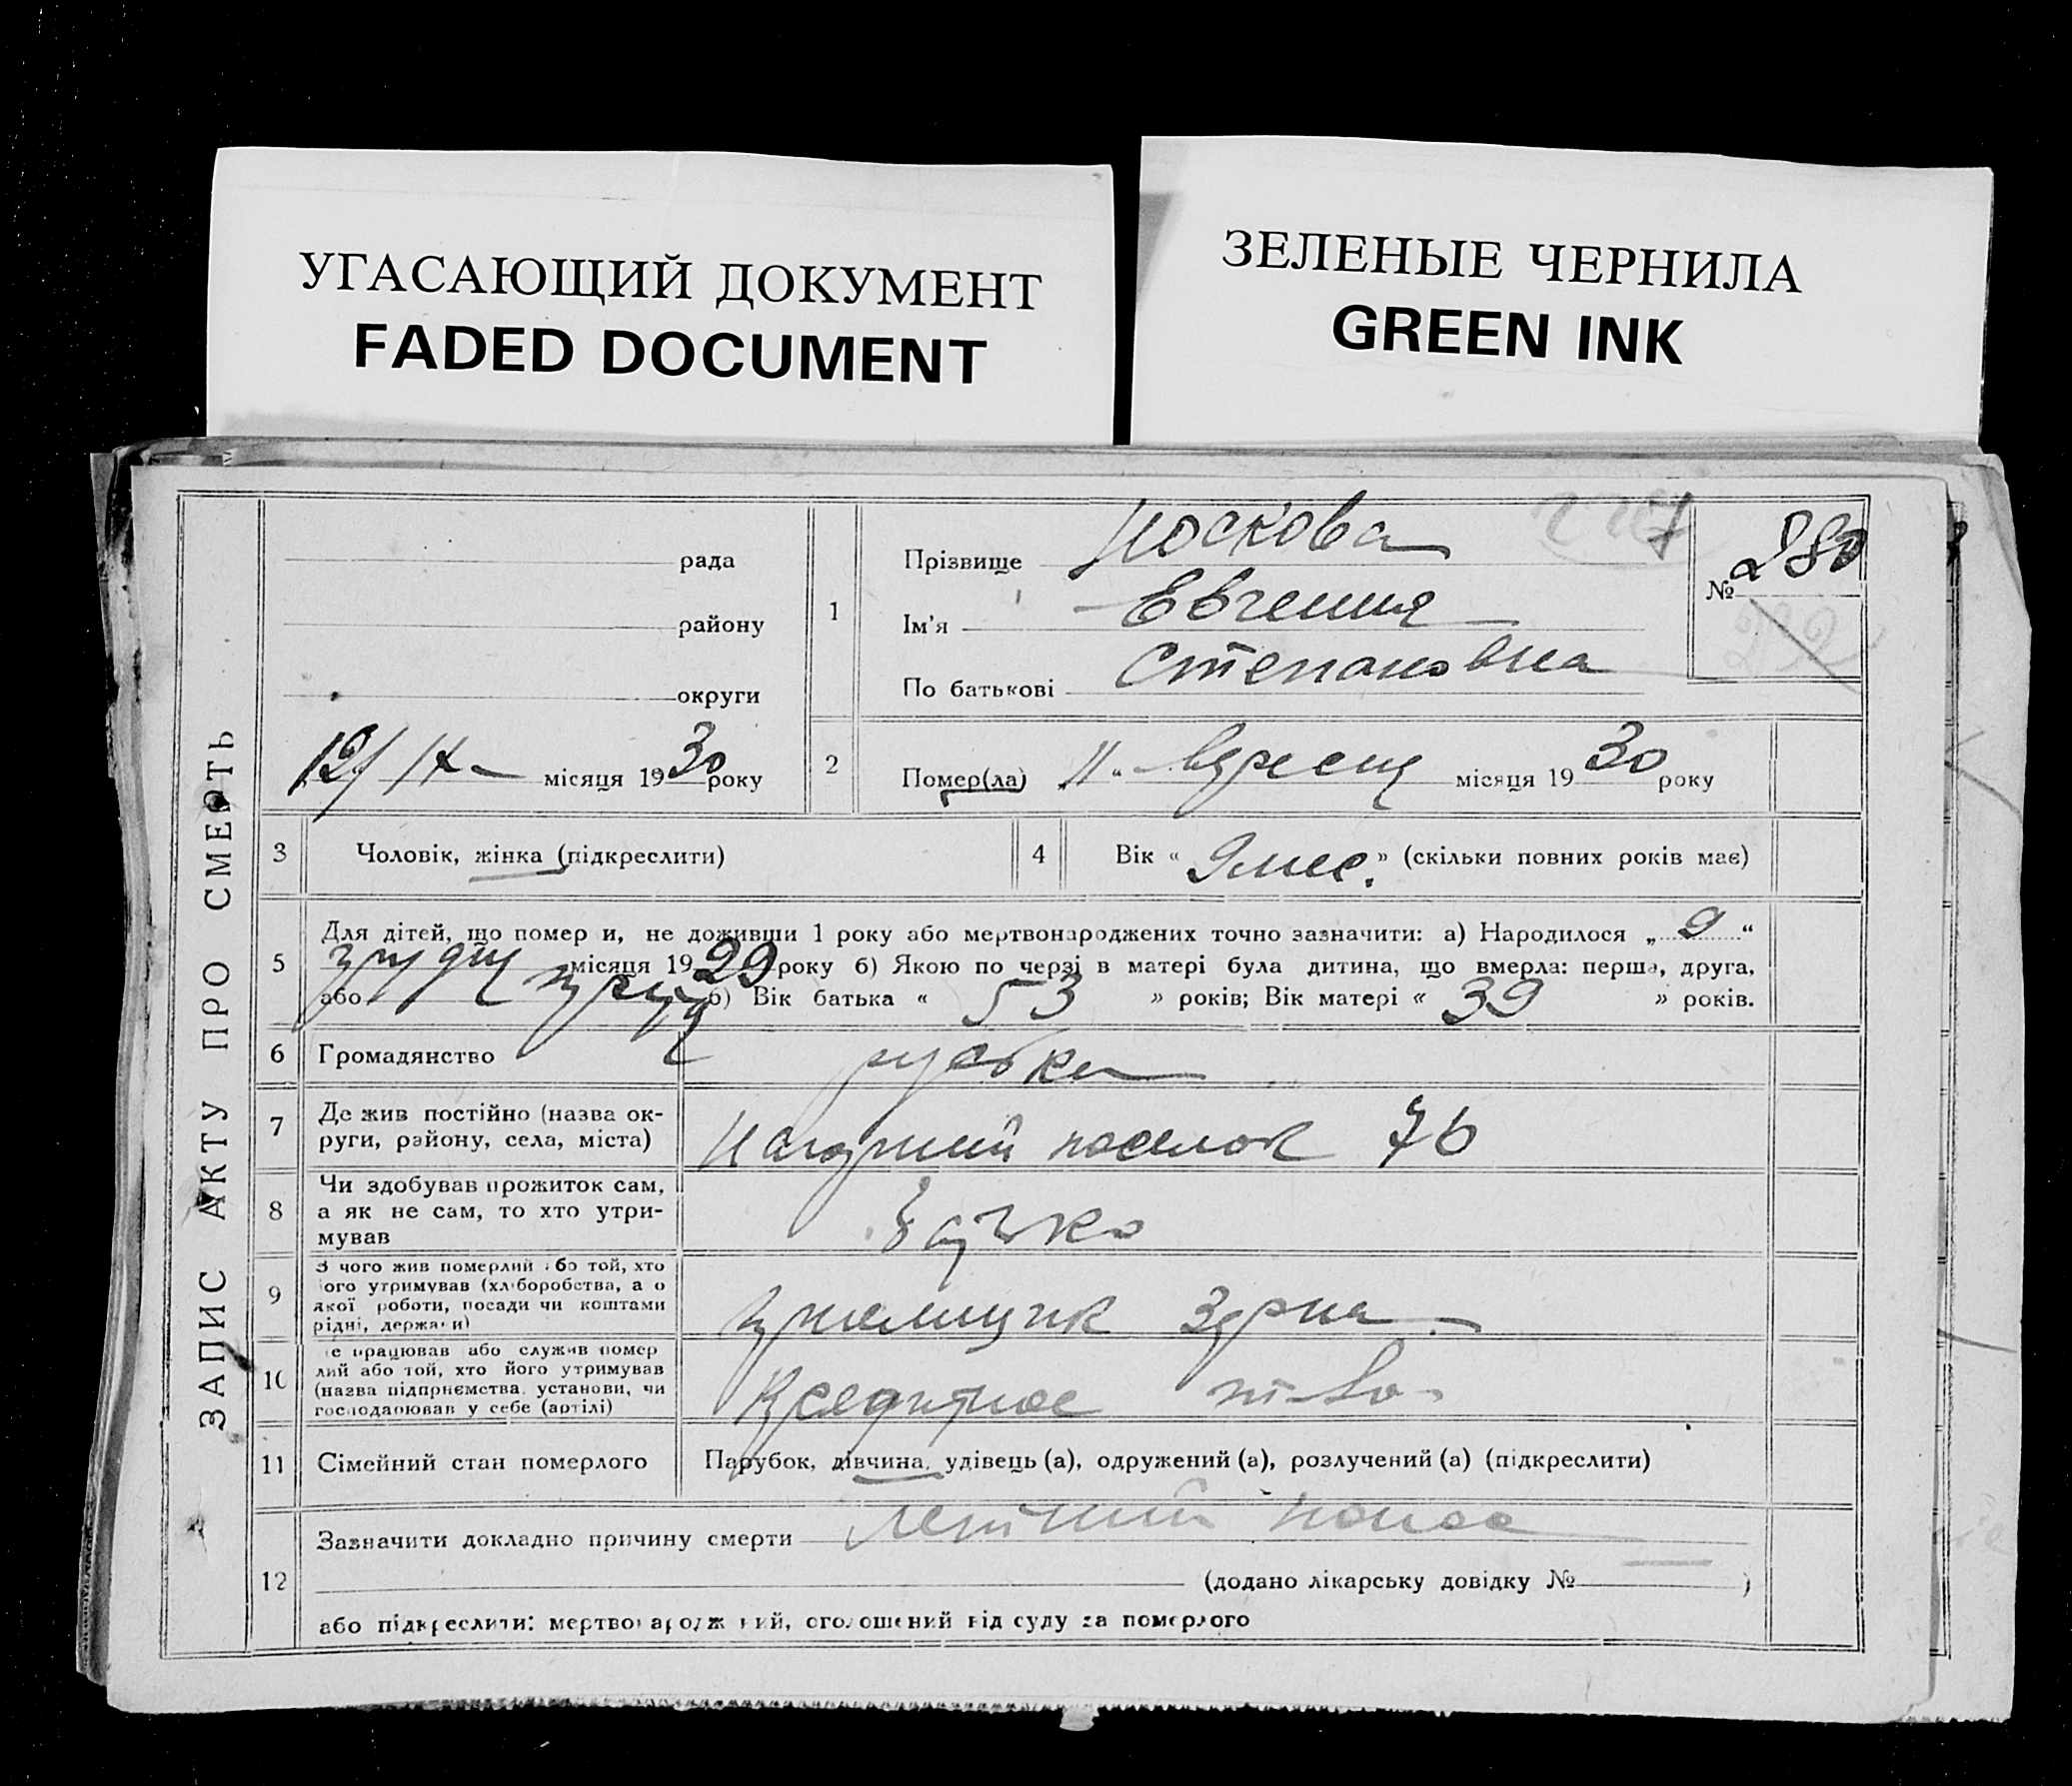 УГАСАЮЩИЙ ДОКУМЕНТ
FADED DOCUMENT
ЗЕЛЕНЫЕ ЧЕРНИЛА
GREEN INK
ЗАПИС АКТУ ПРО СМЕРТЬ
рада
району
округи
12/ IX - місяця 1930 року
1
Прізвище Носкова
Ім'я Евгения
По батькові Степановна
227
№ 280
222
2 Помер(ла) 11 " вересня місяця 1930 року
3 Чоловік, жінка (підкреслити)
4 Вік « 9 мес. » (скільки повних років має)
5 Для дітей, що померли, не доживши 1 року або мертвонароджених точно зазначити: а) Народилося „ 9 “
грудня місяця 1929 року б) Якою по черзі в матері була дитина, що вмерла: перша, друга,
або в) Вік батька « 53 » років; Вік матері « 39 » років.
6 Громадянство руська
7 Де жив постійно (назва ок-
руги, району, села, міста) Нагорный поселок 76
8 Чи здобував прожиток сам,
а як не сам, то хто утри-
мував батько
9 З чого жив померлий або той, хто
його утримував (хліборобства, а о
якої роботи, посади чи коштами
рідні, держави) приемщик зерна -
10 Де працював або служив помер
лий або той, хто його утримував
(назва підприємства, установи, чи
господарював у себе (артілі) Кредитное т-во -
11 Сімейний стан померлого Парубок, дівчина, удівець (а), одружений (а), розлучений (а) (підкреслити)
12 Зазначити докладно причину смерти Летний понос
(додано лікарську довідку № — )
або підкреслити: мертвонароджений, оголошений від суду за померлого